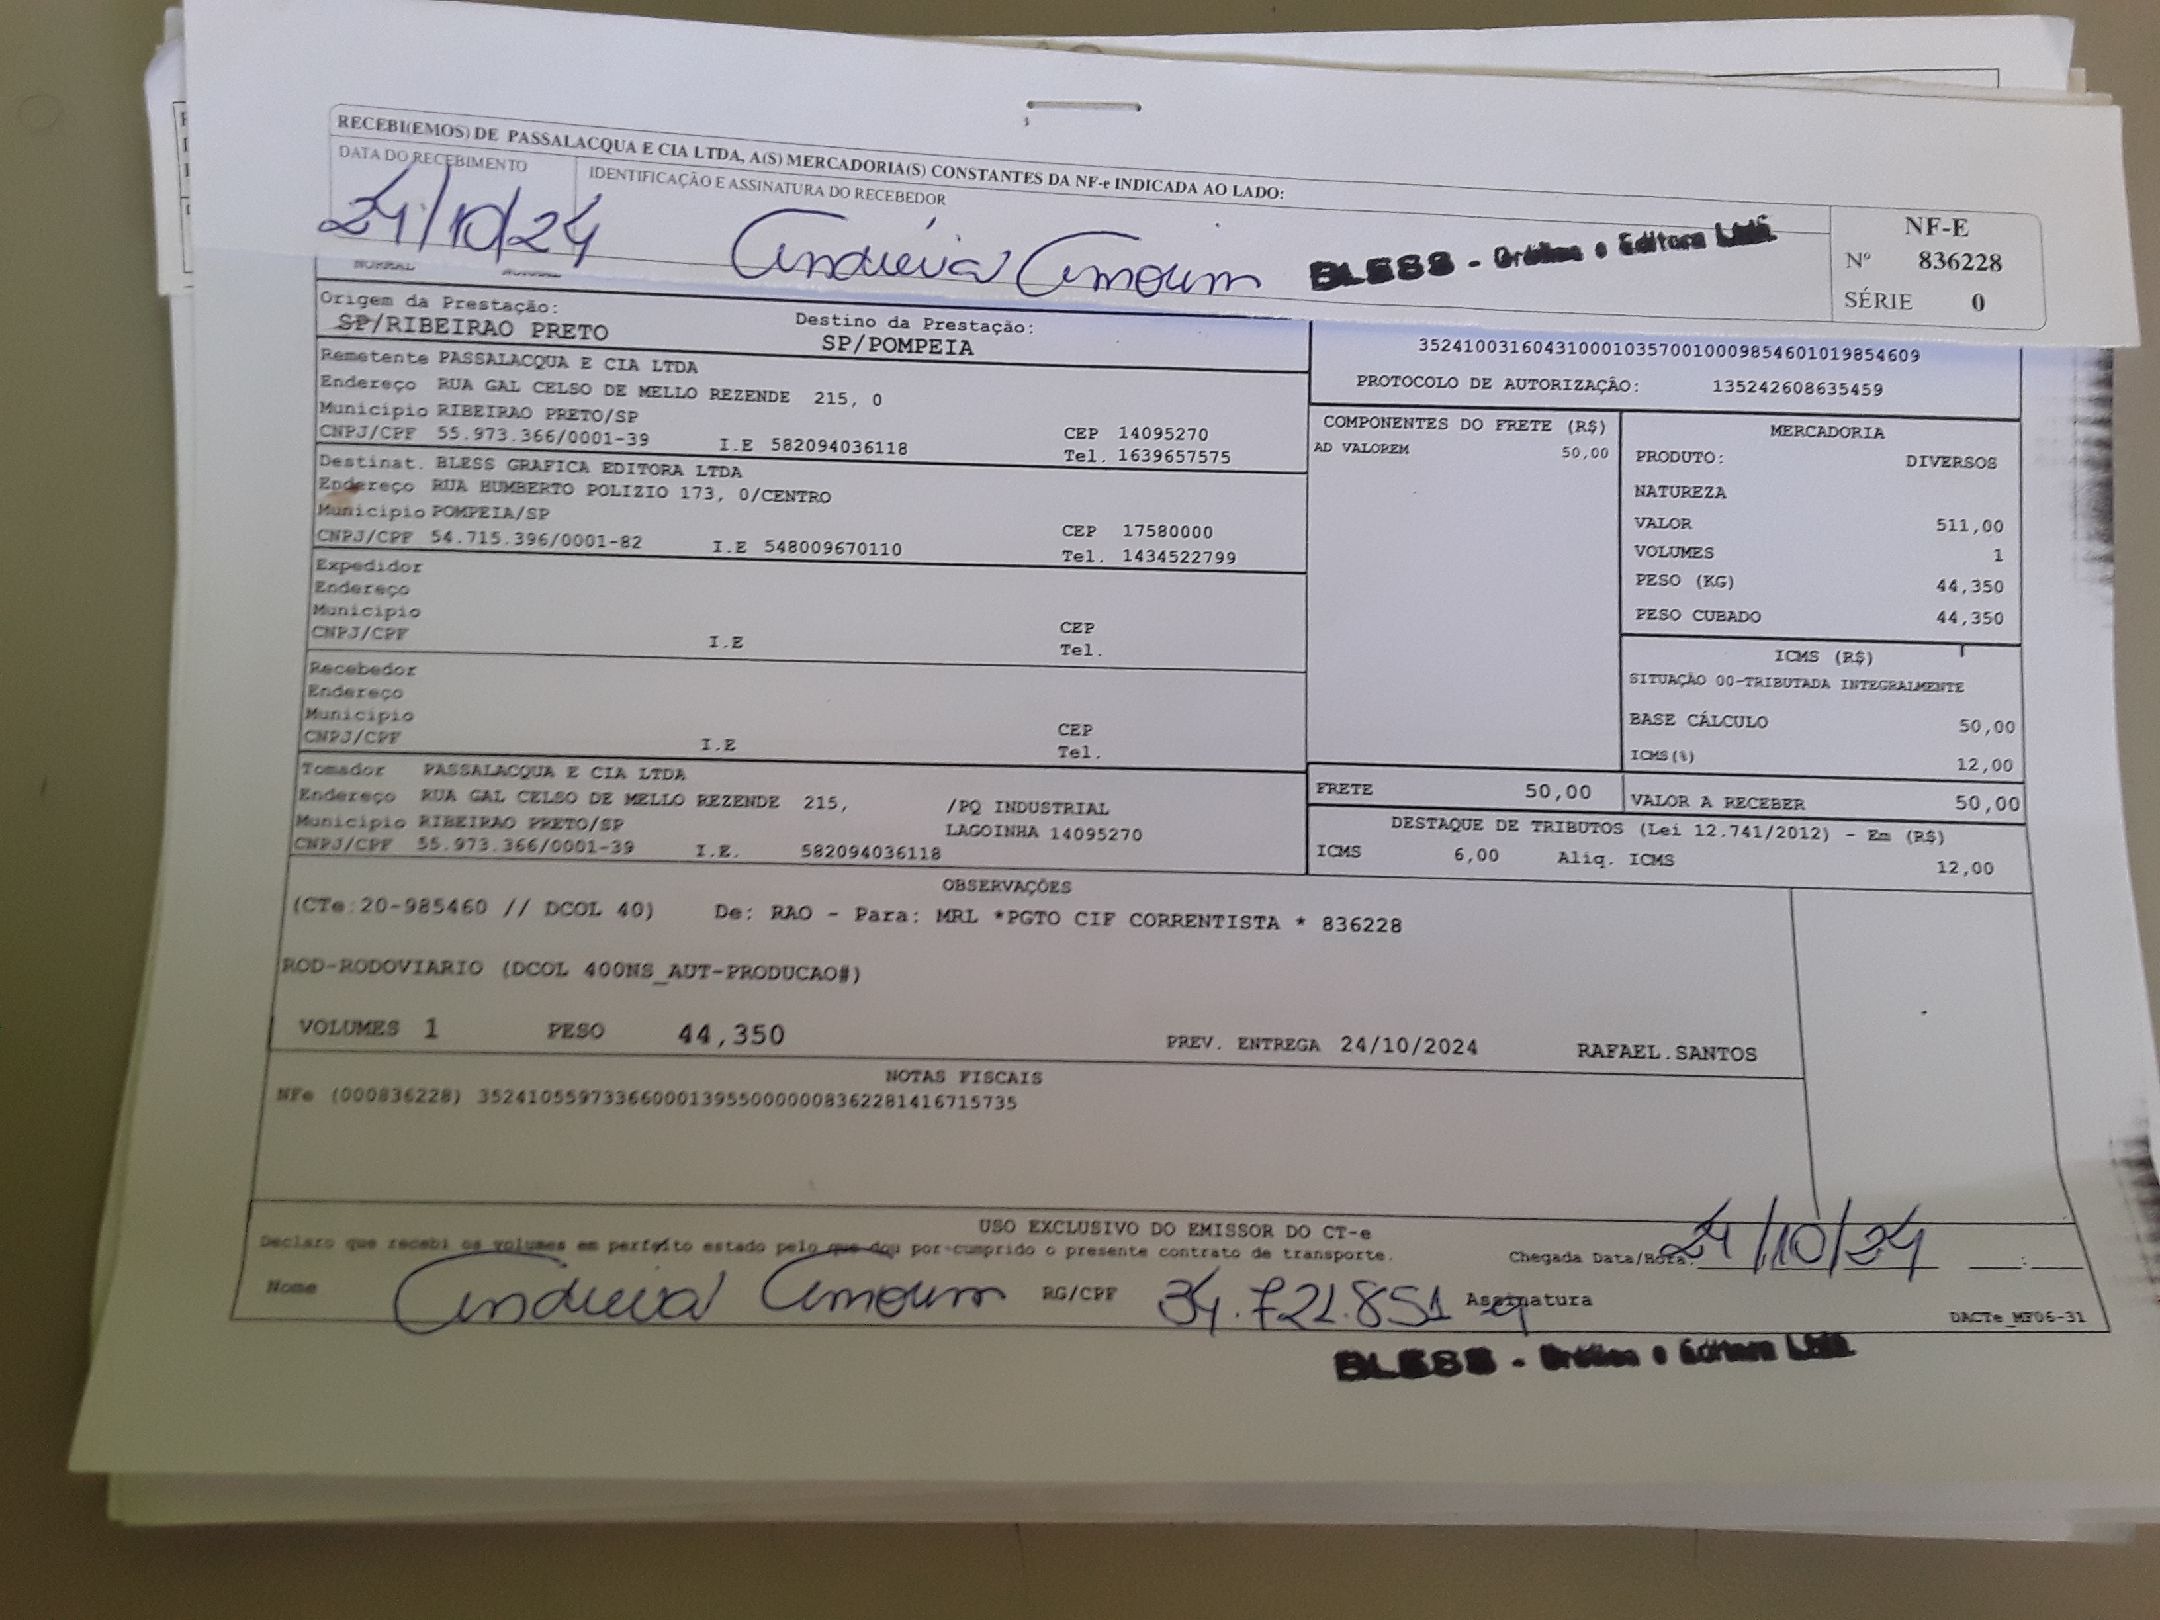 RECEBI(EMOS) DE PASSALACQUA E CIA LTDA, A(S) MERCADORIA(S) CONSTANTES DA NF-e INDICADA AO LADO:
DATA DO RECEBIMENTO
IDENTIFICAÇÃO E ASSINATURA DO RECEBEDOR
24/10/24
Andréia Amorim
BLESS - Gráfica e Editora Ltda.
NF-E
Nº 836228
SÉRIE 0
NORMAL
Origem da Prestação:
SP/RIBEIRAO PRETO
Destino da Prestação:
SP/POMPEIA
35241003160431000103570010009854601019854609
PROTOCOLO DE AUTORIZAÇÃO: 135242608635459
Remetente PASSALACQUA E CIA LTDA
Endereço RUA GAL CELSO DE MELLO REZENDE 215, 0
Municipio RIBEIRAO PRETO/SP
CNPJ/CPF 55.973.366/0001-39 I.E 582094036118
CEP 14095270
Tel. 1639657575
Destinat. BLESS GRAFICA EDITORA LTDA
Endereço RUA HUMBERTO POLIZIO 173, 0/CENTRO
Municipio POMPEIA/SP
CNPJ/CPF 54.715.396/0001-82 I.E 548009670110
CEP 17580000
Tel. 1434522799
Expedidor
Endereço
Municipio
CNPJ/CPF I.E
CEP
Tel.
Recebedor
Endereço
Municipio
CNPJ/CPF I.E
CEP
Tel.
Tomador PASSALACQUA E CIA LTDA
Endereço RUA GAL CELSO DE MELLO REZENDE 215, /PQ INDUSTRIAL
Municipio RIBEIRAO PRETO/SP LAGOINHA 14095270
CNPJ/CPF 55.973.366/0001-39 I.E. 582094036118
COMPONENTES DO FRETE (R$)
AD VALOREM 50,00
MERCADORIA
PRODUTO: DIVERSOS
NATUREZA
VALOR 511,00
VOLUMES 1
PESO (KG) 44,350
PESO CUBADO 44,350
ICMS (R$)
SITUAÇÃO 00-TRIBUTADA INTEGRALMENTE
BASE CÁLCULO 50,00
ICMS(%) 12,00
FRETE 50,00
VALOR A RECEBER 50,00
DESTAQUE DE TRIBUTOS (Lei 12.741/2012) - Em (R$)
ICMS 6,00 Aliq. ICMS 12,00
OBSERVAÇÕES
(CTe:20-985460 // DCOL 40) De: RAO - Para: MRL *PGTO CIF CORRENTISTA * 836228
ROD-RODOVIARIO (DCOL 400NS_AUT-PRODUCAO#)
VOLUMES 1 PESO 44,350 PREV. ENTREGA 24/10/2024 RAFAEL.SANTOS
NOTAS FISCAIS
NFe (000836228) 35241055973366000139550000008362281416715735
USO EXCLUSIVO DO EMISSOR DO CT-e
Declaro que recebi os volumes em perfeito estado pelo que dou por cumprido o presente contrato de transporte.
Chegada Data/Hora: 24/10/24
Nome Andréia Amorim RG/CPF 34.721.851 Assinatura
DACTe_MF06-31
BLESS - Gráfica e Editora Ltda.